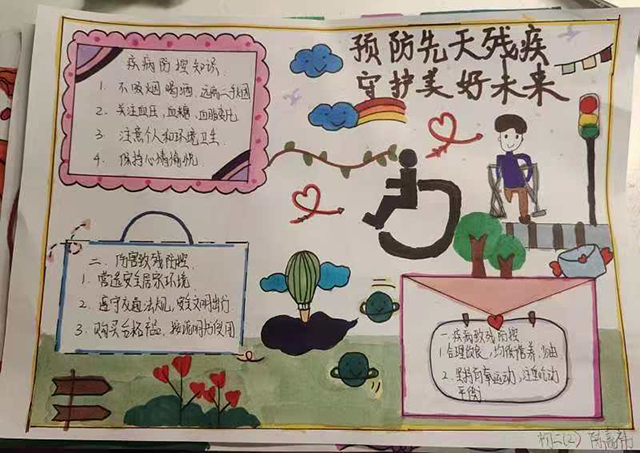 预防先天残疾
守护美好未来
疾病防控知识
1. 不吸烟 喝酒, 远离二手烟
2. 关注血压, 血糖, 血脂变化
3. 注意个人和环境卫生
4. 保持心情愉悦
二、伤害致残防控
1. 营造安全居家环境
2. 遵守交通法规, 安全文明出行
3. 购买合格产品, 按说明书使用
一、疾病致残防控
1. 合理饮食, 均衡营养
2. 坚持有氧运动, 注意
平衡
初二(2)